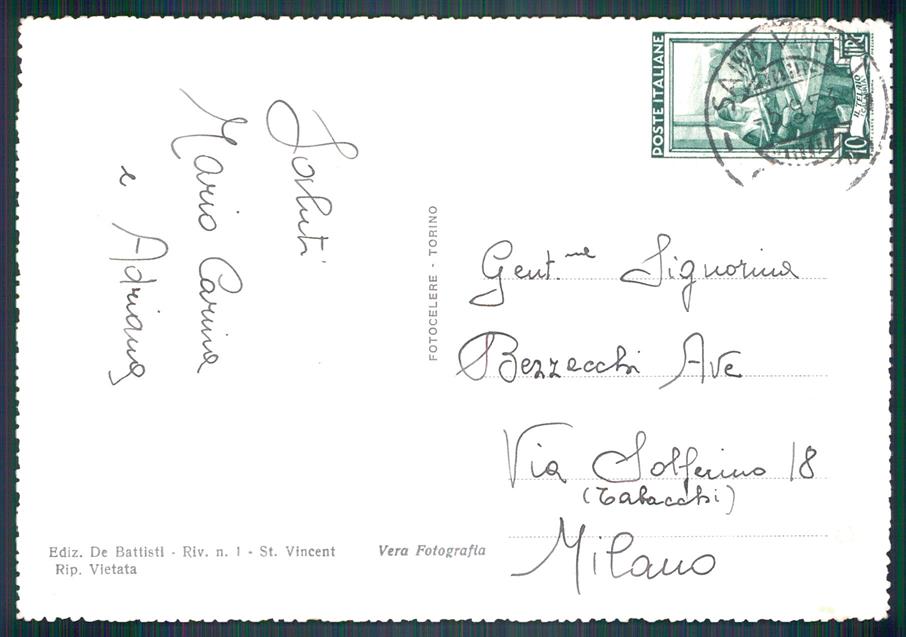 Saluti
Mario Carina
e Adriana
FOTOCELERE - TORINO
Ediz. De Battisti - Riv. n. 1 - St. Vincent
Rip. Vietata
Vera Fotografia
POSTE ITALIANE
LIRE
10
IL TELAIO
Gent.me Signorina
Bezzecchi Ave
Via Solferino 18
(Tabacchi)
Milano